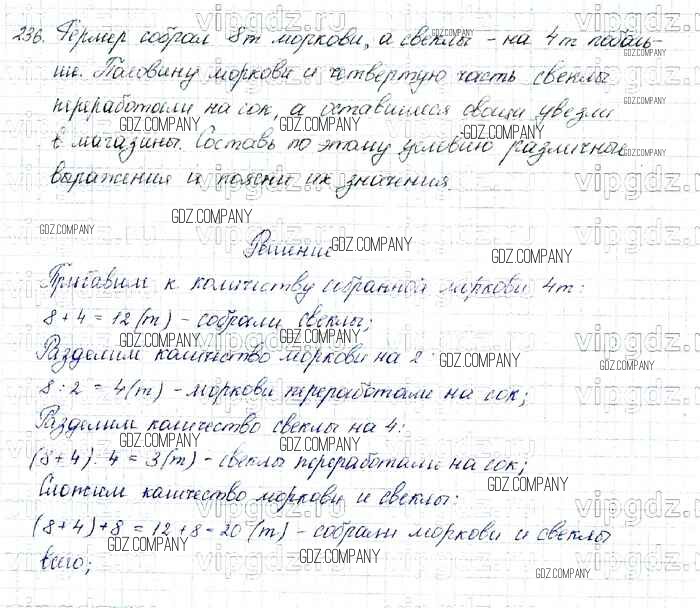 236. Фермер собрал 8т моркови, а свеклы - на 4т поболь-
ше. Половину моркови и четвертую часть свеклы
переработали на сок, а оставшиеся овощи увезли
в магазины. Составь по этому условию различные
выражения и поясни их значения.
Решение
Прибавим к количеству собранной моркови 4т:
8 + 4 = 12 (т) - собрали свеклы;
Разделим количество моркови на 2:
8 : 2 = 4 (т) - моркови переработали на сок;
Разделим количество свеклы на 4:
(8+4) : 4 = 3 (т) - свеклы переработали на сок;
Сложим количество моркови и свеклы:
(8+4)+8 = 12+8=20 (т) - собрали моркови и свеклы
всего;
vipgdz.ru
GDZ.COMPANY